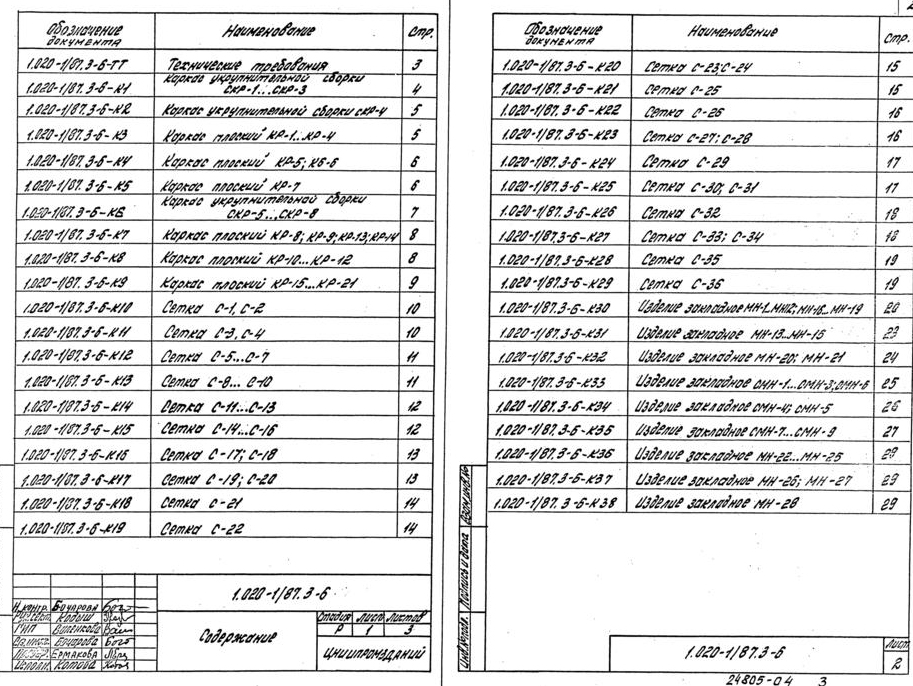 Обозначение документа Наименование Стр.
1.020-1/87.3-6-ТТ Технические требования 3
1.020-1/87.3-6-К1 Каркас укрупнительной сборки СКР-1...СКР-3 4
1.020-1/87.3-6-К2 Каркас укрупнительной сборки СКР-4 5
1.020-1/87.3-6-К3 Каркас плоский КР-1...КР-4 5
1.020-1/87.3-6-К4 Каркас плоский КР-5; КБ-6 6
1.020-1/87.3-6-К5 Каркас плоский КР-7 6
1.020-1/87.3-6-К6 Каркас укрупнительной сборки СКР-5...СКР-8 7
1.020-1/87.3-6-К7 Каркас плоский КР-8; КР-9; КР-13; КР-14 8
1.020-1/87.3-6-К8 Каркас плоский КР-10...КР-12 8
1.020-1/87.3-6-К9 Каркас плоский КР-15...КР-21 9
1.020-1/87.3-6-К10 Сетка С-1, С-2 10
1.020-1/87.3-6-К11 Сетка С-3, С-4 10
1.020-1/87.3-6-К12 Сетка С-5...С-7 11
1.020-1/87.3-6-К13 Сетка С-8...С-10 11
1.020-1/87.3-6-К14 Сетка С-11...С-13 12
1.020-1/87.3-6-К15 Сетка С-14...С-16 12
1.020-1/87.3-6-К16 Сетка С-17; С-18 13
1.020-1/87.3-6-К17 Сетка С-19; С-20 13
1.020-1/87.3-6-К18 Сетка С-21 14
1.020-1/87.3-6-К19 Сетка С-22 14
1.020-1/87.3-6
Н.контр. Бочарова
ГИП
Ермакова
Исполн. Котова
Содержание
Стадия Лист Листов
Р 1 3
ЦНИИПРОМЗДАНИЙ
2
Обозначение документа Наименование Стр.
1.020-1/87.3-6-К20 Сетка С-23; С-24 15
1.020-1/87.3-6-К21 Сетка С-25 15
1.020-1/87.3-6-К22 Сетка С-26 16
1.020-1/87.3-6-К23 Сетка С-27; С-28 16
1.020-1/87.3-6-К24 Сетка С-29 17
1.020-1/87.3-6-К25 Сетка С-30; С-31 17
1.020-1/87.3-6-К26 Сетка С-32 18
1.020-1/87.3-6-К27 Сетка С-33; С-34 18
1.020-1/87.3-6-К28 Сетка С-35 19
1.020-1/87.3-6-К29 Сетка С-36 19
1.020-1/87.3-6-К30 Изделие закладное МН-1...МН12; МН-16...МН-19 20
1.020-1/87.3-6-К31 Изделие закладное МН-13...МН-15 23
1.020-1/87.3-6-К32 Изделие закладное МН-20; МН-21 24
1.020-1/87.3-6-К33 Изделие закладное СМН-1...СМН-3; СМН-6 25
1.020-1/87.3-6-К34 Изделие закладное СМН-4; СМН-5 26
1.020-1/87.3-6-К35 Изделие закладное СМН-7...СМН-9 27
1.020-1/87.3-6-К36 Изделие закладное МН-22...МН-25 28
1.020-1/87.3-6-К37 Изделие закладное МН-26; МН-27 29
1.020-1/87.3-6-К38 Изделие закладное МН-28 29
Взам.инв.№
Подпись и дата
Инв.№ подл.
1.020-1/87.3-6
Лист
2
24805-04 3